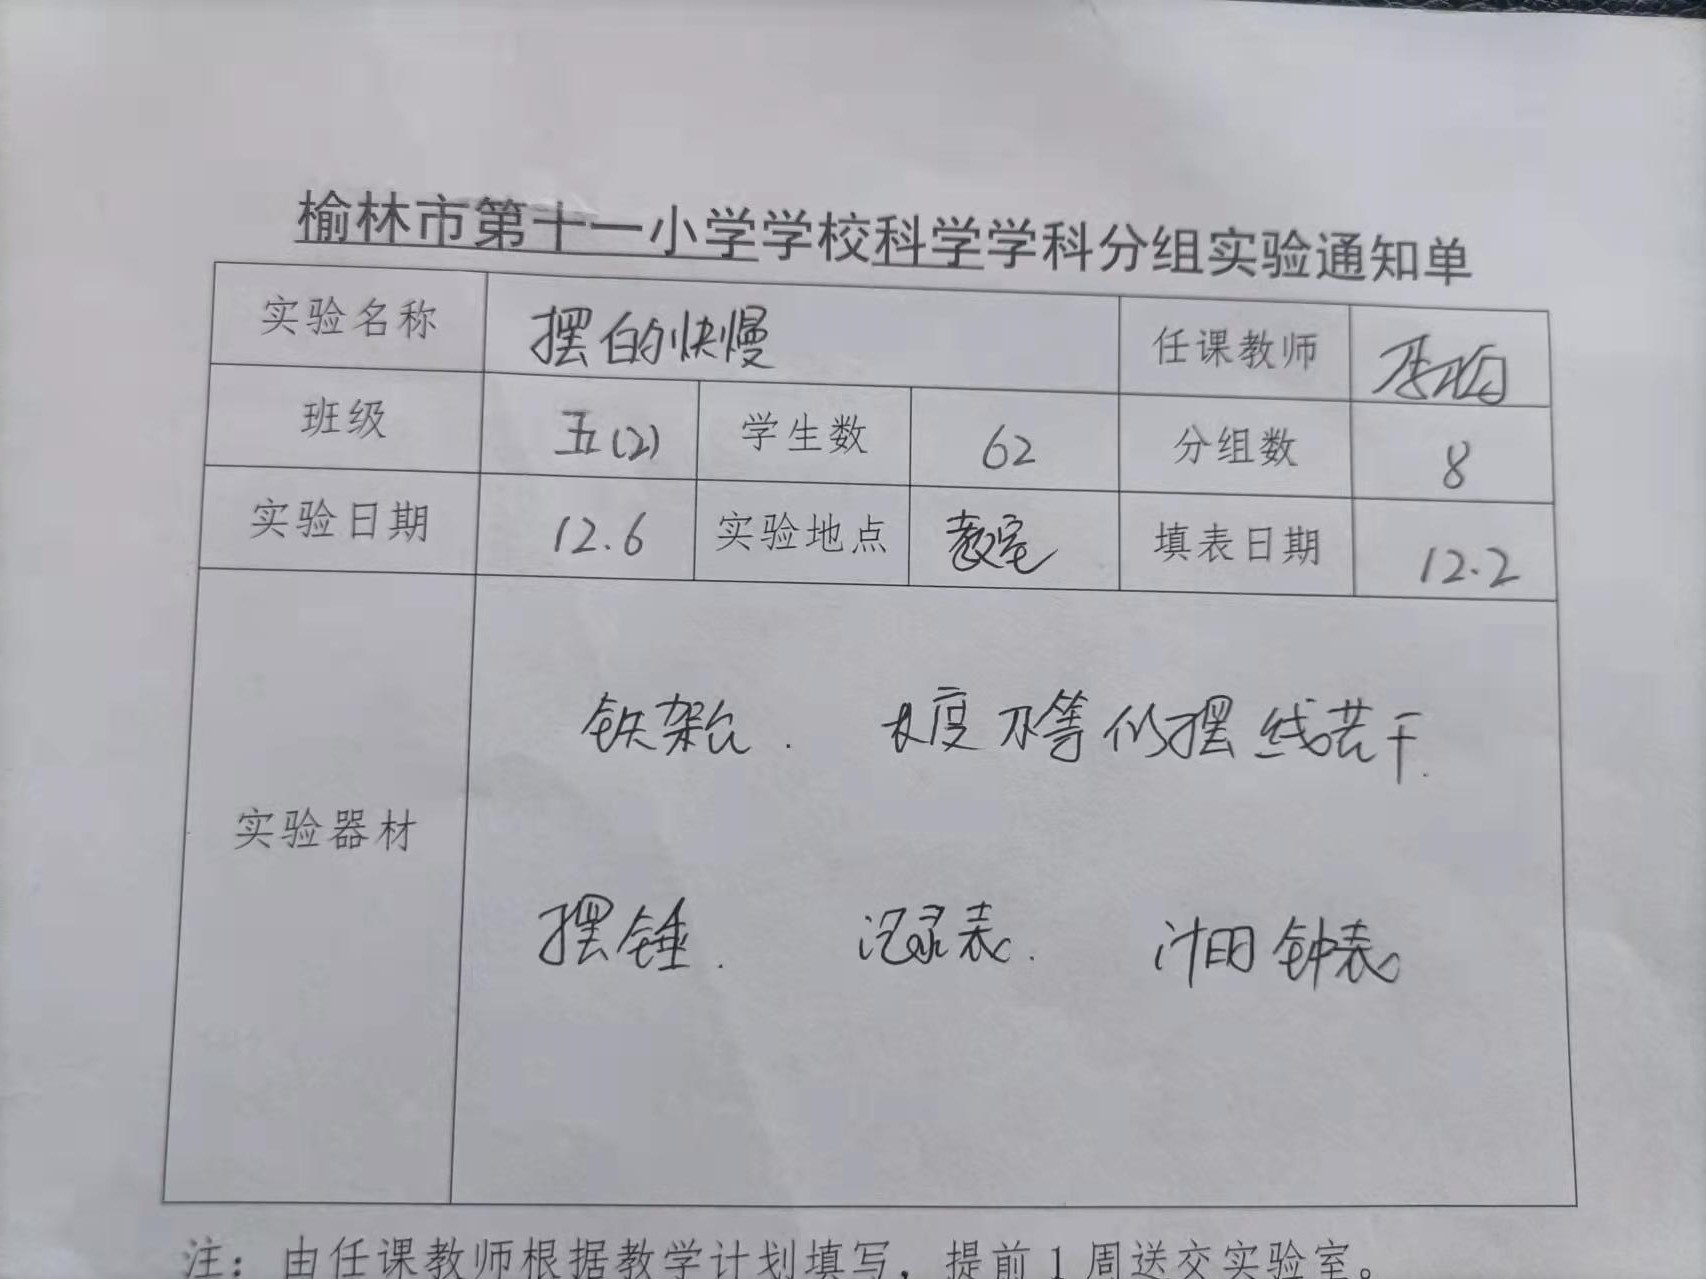 榆林市第十一小学学校科学学科分组实验通知单
实验名称 摆的快慢 任课教师
班级 五(2) 学生数 62 分组数 8
实验日期 12.6 实验地点 教室 填表日期 12.2
铁架台. 长度不等的摆线若干.
实验器材
摆锤. 记录表. 计时钟表
注：由任课教师根据教学计划填写，提前1周送交实验室。